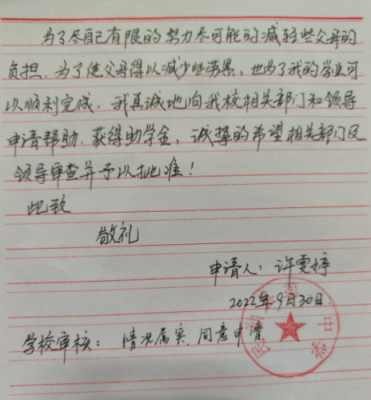 为了尽自己有限的努力尽可能的减轻些父母的
负担，为了使父母得以减少些劳累，也为了我的学业可
以顺利完成，我真诚地向我校相关部门和领导
申请帮助、获得助学金，诚挚的希望相关部门及
领导审查并予以批准！
此致
敬礼
申请人：许雯婷
2022年9月30日
学校审核：情况属实，同意申请